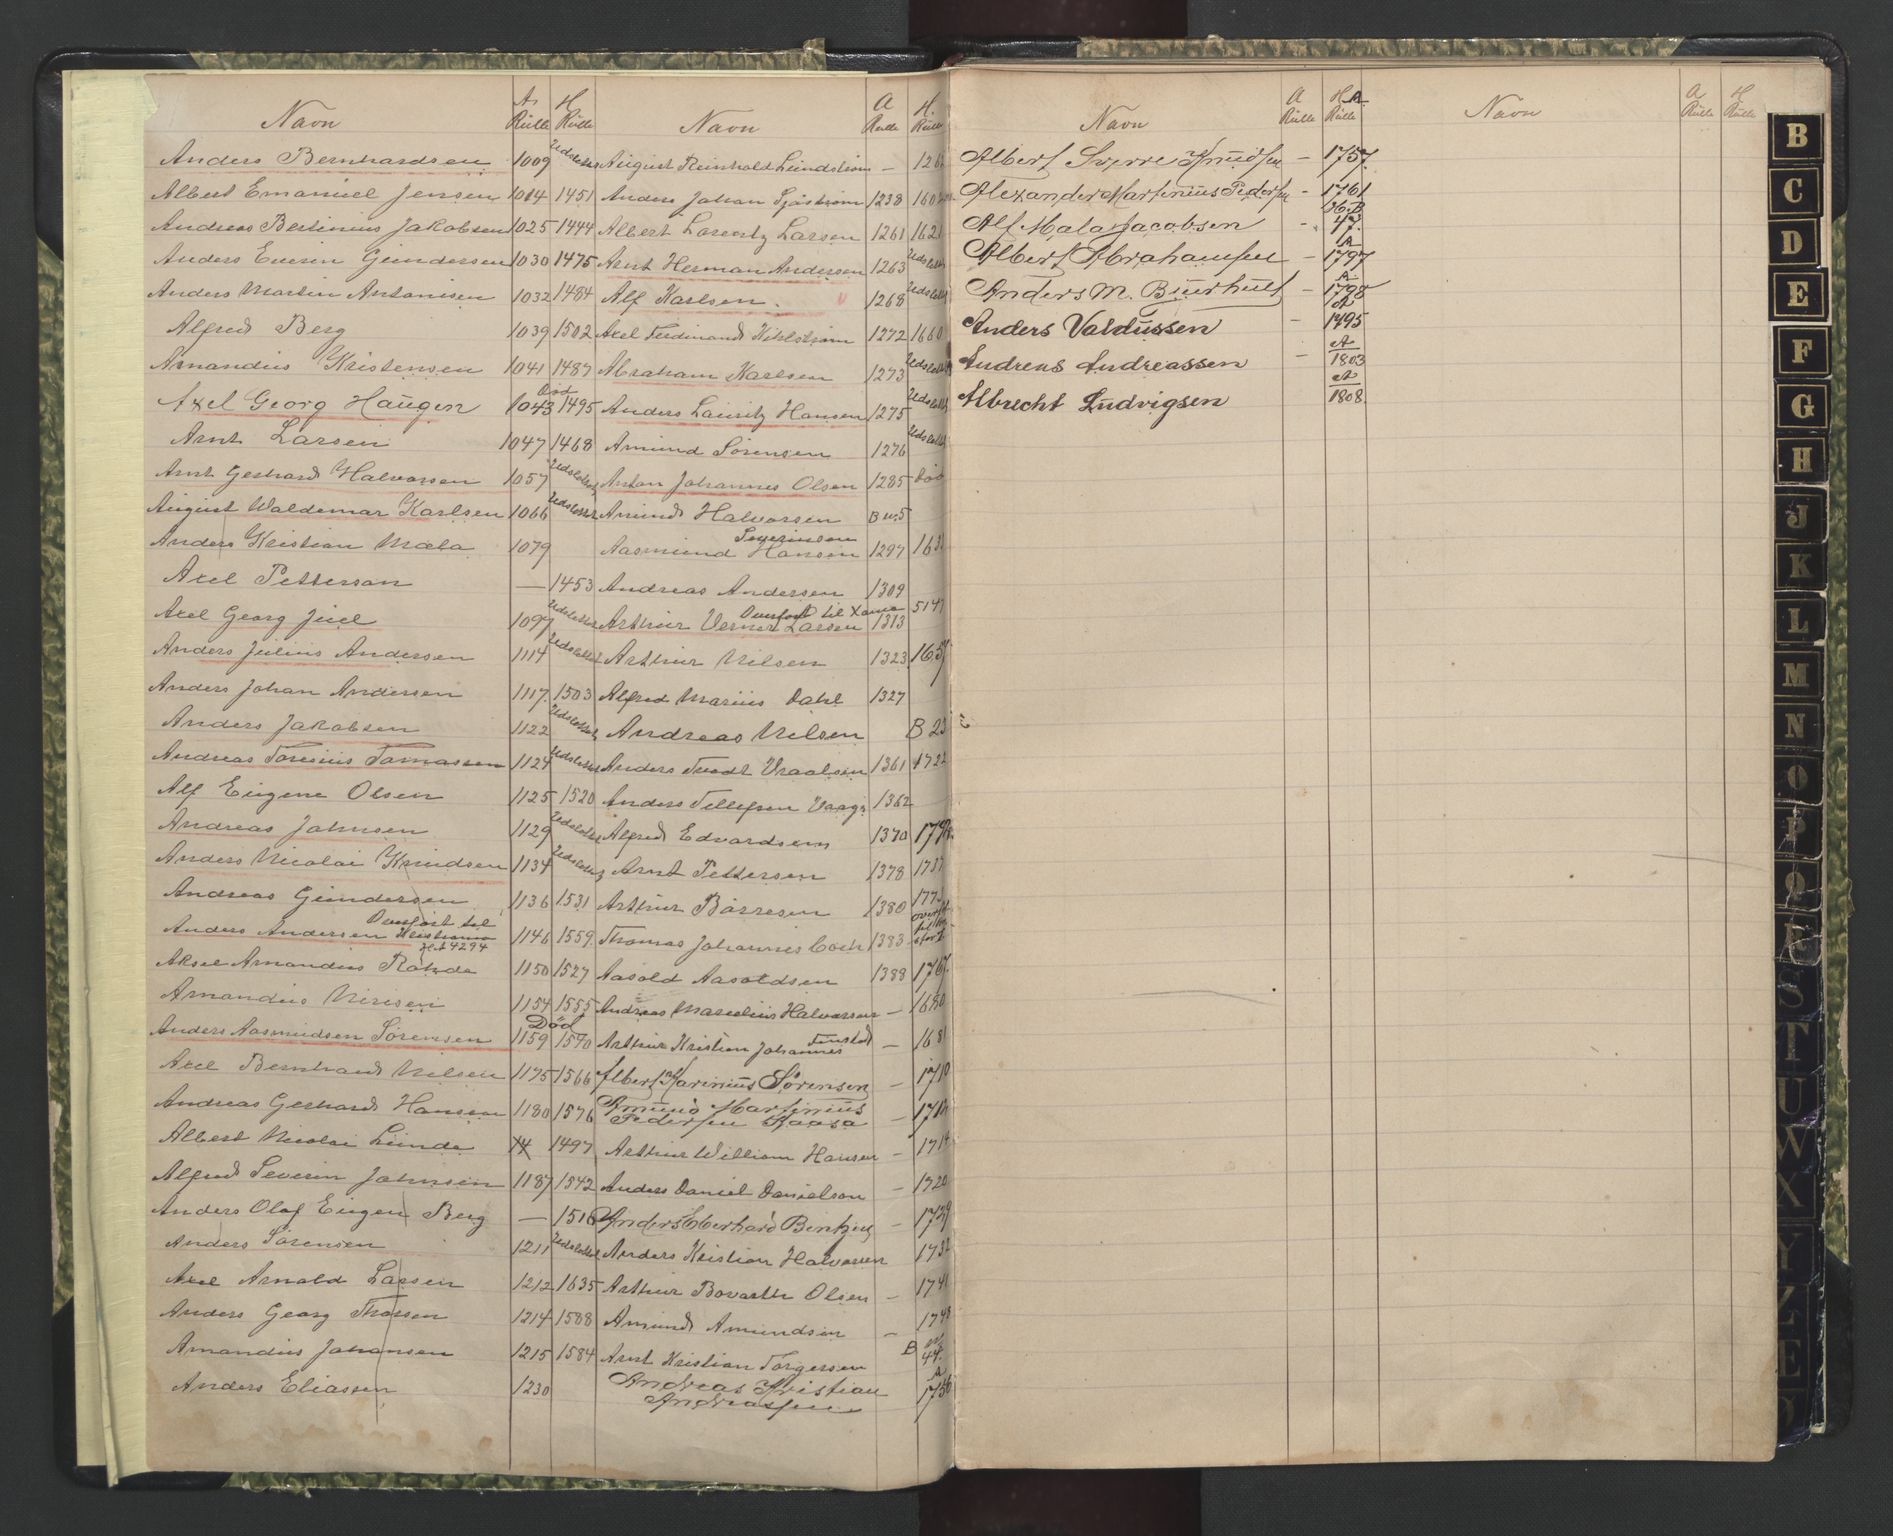 Navn A. Rulle H. Rulle
Anders Bernhardsen 1009 Udslettet
Albert Emanuel Jensen 1014 1451
Andreas Bertinius Jakobsen 1025 1444
Anders Everin Gundersen 1030 1475
Anders Martin Antonisen 1032 1484
Alfred Berg 1039 1502
Amandus Kristensen 1041 1487
Axel Georg Haugen 1043 Död 1495
Arnt Larsen 1047 1468
Arnt Gerhard Halvorsen 1057 Udslettet
August Waldemar Karlsen 1066 Udslettet
Anders Kristian Mæla 1079
Axel Petterson — 1453
Axel Georg Juel 1097 Udslettet
Anders Julius Andersen 1114 Udslettet
Anders Johan Andersen 1117. 1503
Anders Jakobsen 1122 Udslettet
Andreas Toresius Tomassen 1124 Udslettet
Alf Eugene Olsen 1125 1520
Andreas Johnsen 1129 Udslettet
Anders Nicolai Knudsen 1134 Udslettet
Andreas Gundersen 1136 1531
Overfört til
Anders Andersen Kristiania 1146 1559
4294
Aksel Amandus Rohde 1150 1527
Amandus Nirisen 1154 1555
Död
Anders Aasmundsen Sörensen 1159 1570
Axel Bernhard Nilsen 1175 1566
Andreas Gerhard Hansen 1180 1576
Albert Nicolai Lunde 1497
Alfred Severin Johnsen 1187 1542
Anders Olaf Eugen Berg — 1516
Anders Sörensen 1211 Udslettet
Axel Arnold Larsen 1212 1635
Anders Georg Thorsen 1214 1588
Amandus Johansen 1215 1584
Anders Eliassen 1230
Navn A Rulle H. Rulle
August Reinhold Lundström —
Anders Johan Sjöström 1238
Albert Lorentz Larsen 1261 1621
Arnt Herman Andersen 1263 Udslettet
Alf Karlsen. 1268 Udslettet
Axel Ferdinand Kihlström 1272 1660
Abraham Karlsen 1273 Udslettet
Anders Lauritz Hansen 1275 Udslettet
Amund Sörensen 1276 Udslettet
Anton Johannes Olsen 1285 Död
Amund Halvorsen
Severinsen
Aasmund Hansen 1297
Andreas Andersen 1309
Overfört til 5147
Arthur Verner Larsen 1313
Arthur Nilsen 1323 1657
Alfred Marius Dahl 1327
Andreas Nilsen B 23
Anders Tvedt Vraalsen 1361 1722
Anders Tellefsen Vaage 1362
Alfred Edvardsen 1370
Arnt Pettersen 1378 1737
Arthur Börresen 1380
Thomas Johannes Coch 1383
Aasold Aasoldsen 1388 1767.
Andreas Marselius Halvorsen — 1680
Arthur Kristian Johannes — 1681
Albert Karinius Sörensen — 1710
Amund Martinius
Pedersen Raasa —
Arthur William Hansen — 1714
Anders Daniel Danielson — 1720
Anders Eberhard Bentzen — 1729
Anders Kristian Halvorsen 1732
Arthur Bovarth Olsen — 1741
Amund Amundsen — 1748
Arnt Kristian Torgersen B 44.
Andreas Kristian A
Andreassen 1756
Navn A Rulle H. A. Rulle
Albert Sverre Knudsen — 1757.
Alexander Martinius Pedersen - 1761
Alf Mala Jacobsen - 47.
A
Albert Abrahamsen — 1797
A
Anders M. Buurhult — 1798
A
Anders Valdussen — 1795
A
Andreas Andreassen — 1803
A
Albrecht Ludvigsen 1808
Navn A Rulle H Rulle
B
C
D
E
F
G
H
J
K
L
M
N
O
P
Q
R
S
T
U
W
X
Y
Z
Æ